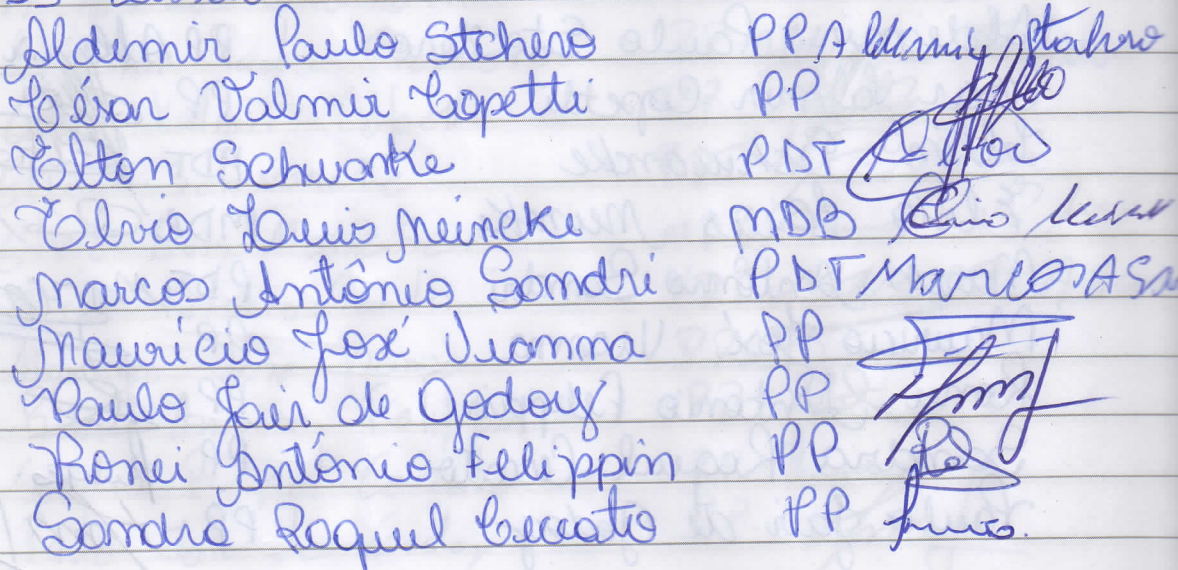 Aldemir Paulo Stchero PP
César Valmir Copetti PP
Elton Schwanke PDT
Elvio Luis Meincke MDB
Marcos Antônio Sandri PDT Marcos A
Maurício José Vianna PP
Paulo Jair de Godoy PP
Ronei Antônio Felippin PP
Sandra Raquel Ceccato PP